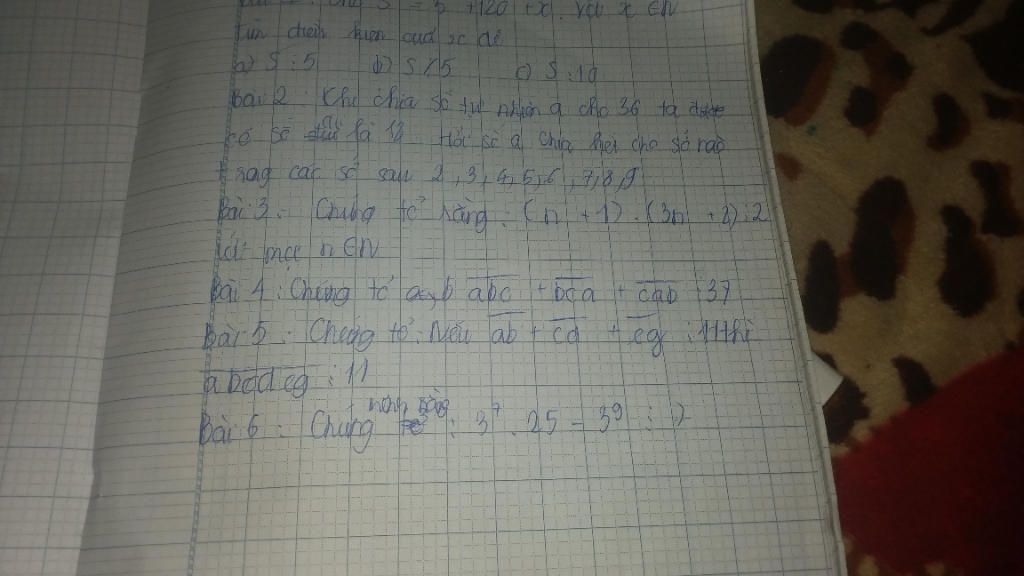 Cho S = 5 + 120 + x. Với x ∈ N
Tìm điều kiện của x để
a) S ⋮ 5 b) S ⋮̸ 5 c) S ⋮ 10
Bài 2: Khi chia số tự nhiên a cho 36 ta được
có số dư là 12 Hỏi số a chia hết cho số nào
trong các số sau 2, 3, 4, 5, 6, 7, 8, 9
Bài 3: Chứng tỏ rằng: (n + 1) . (3n + 2) ⋮ 2
với mọi n ∈ N
Bài 4: Chứng tỏ abc + bca + cab ⋮ 37
Bài 5: Chứng tỏ: Nếu ab + cd + eg ⋮ 11 thì
abcdeg ⋮ 11
Bài 6: Chứng minh rằng: 3⁷ . 25 - 3⁹ ⋮